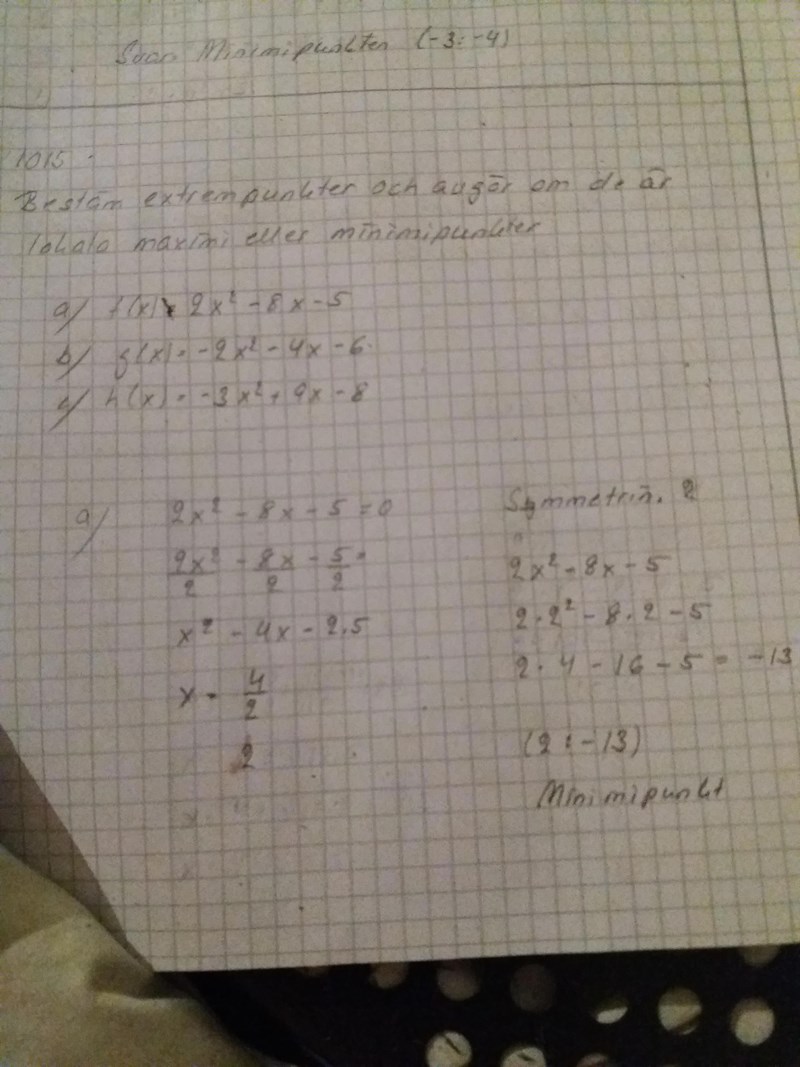 Svar Minimipunkten (-3:-4)
1015.
Bestäm extrempunkter och avgör om de är
lokala maximi eller minimipunkter
a) f(x) = 2x² - 8x - 5
b) g(x) = -2x² - 4x - 6
c) h(x) = -3x² + 9x - 8
a) 2x² - 8x - 5 = 0
2x²/2 - 8x/2 - 5/2 =
x² - 4x - 2.5
x = 4/2
2
Symmetrin. 2
2x² - 8x - 5
2 · 2² - 8 · 2 - 5
2 · 4 - 16 - 5 = -13
(2 : -13)
Minimipunkt